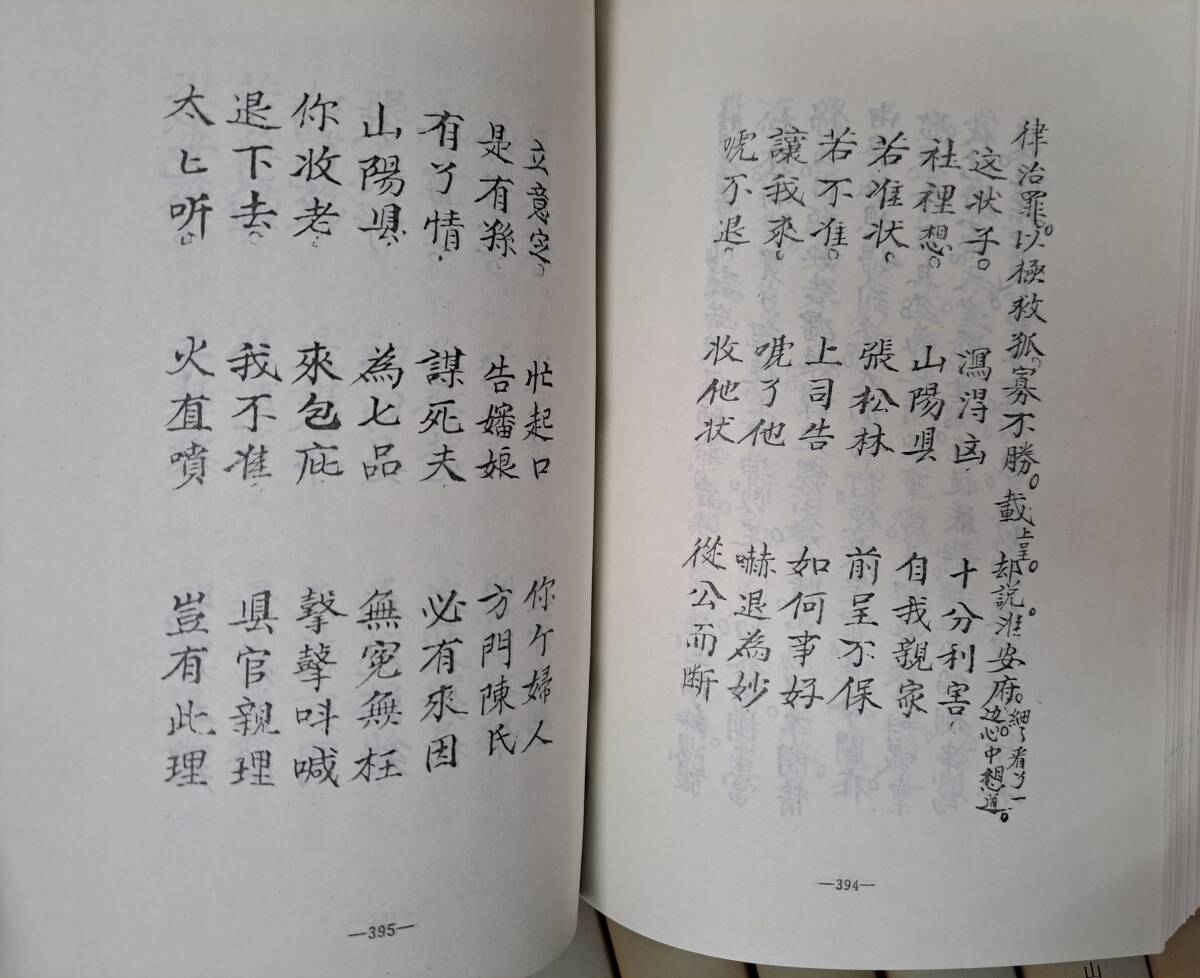 律治罪。以極救孤寡不勝。載上呈。却說淮安府。細〻看了一边。心中想道。
这狀子。 寫得凶 十分利害。
社裡想。 山陽县 自我親家
若准狀。 張松林 前呈不保
若不准。 上司告 如何事好
讓我來。 唬了他 嚇退為妙
唬不退。 收他狀 從公而断
—394—
立意定。 忙起口 你个婦人
是有孫。 告嬸娘 方門陳氏
有了情。 謀死夫 必有來因
山陽县。 為七品 無冤無枉
你收老。 來包庇 擊擊呌喊
退下去。 我不准。 县官親理
太匕听。 火直噴 豈有此理
—395—
山